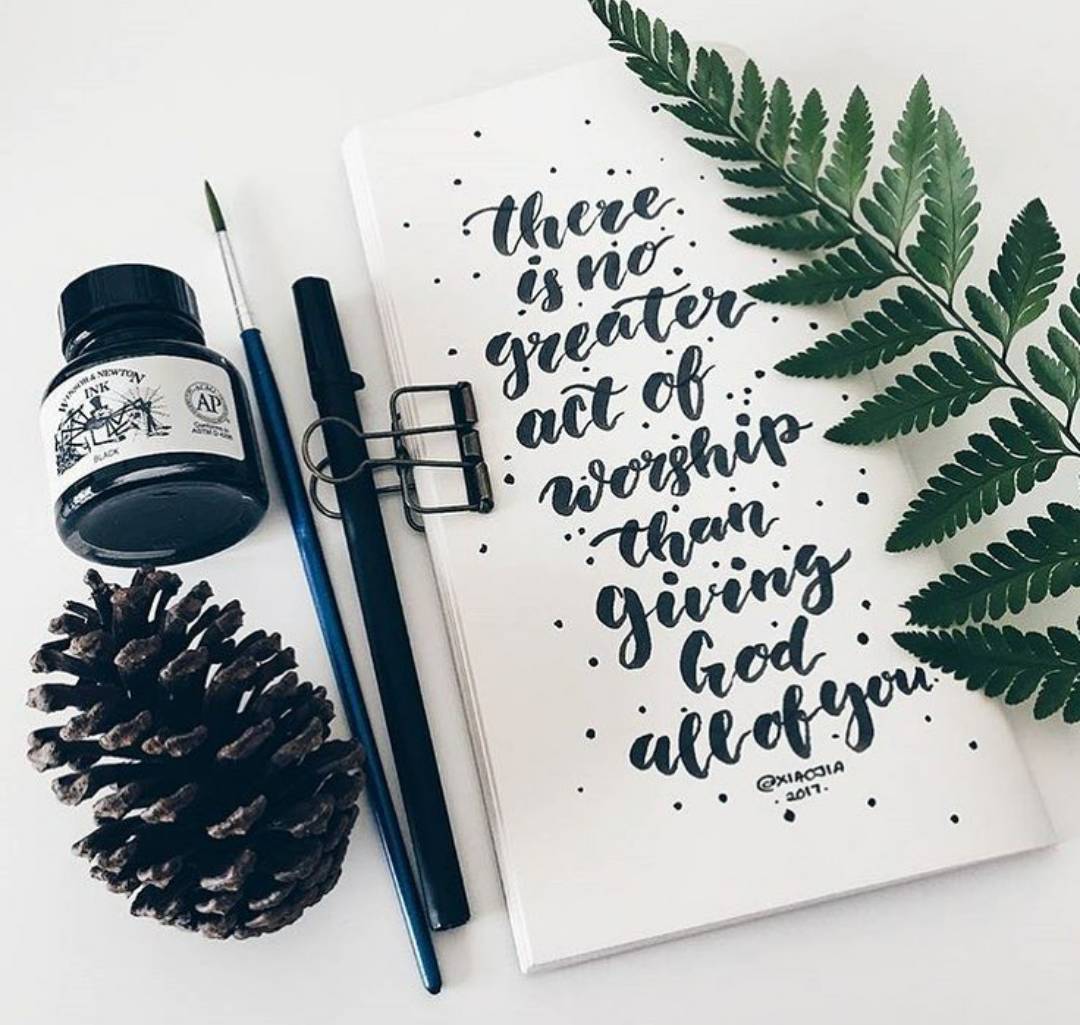 WINSOR & NEWTON
INK
AP
ASTM D-4236
BLACK
there
is no
greater
act of
worship
than
giving
God
all of you.
@XIAOJIA
· 2017 ·